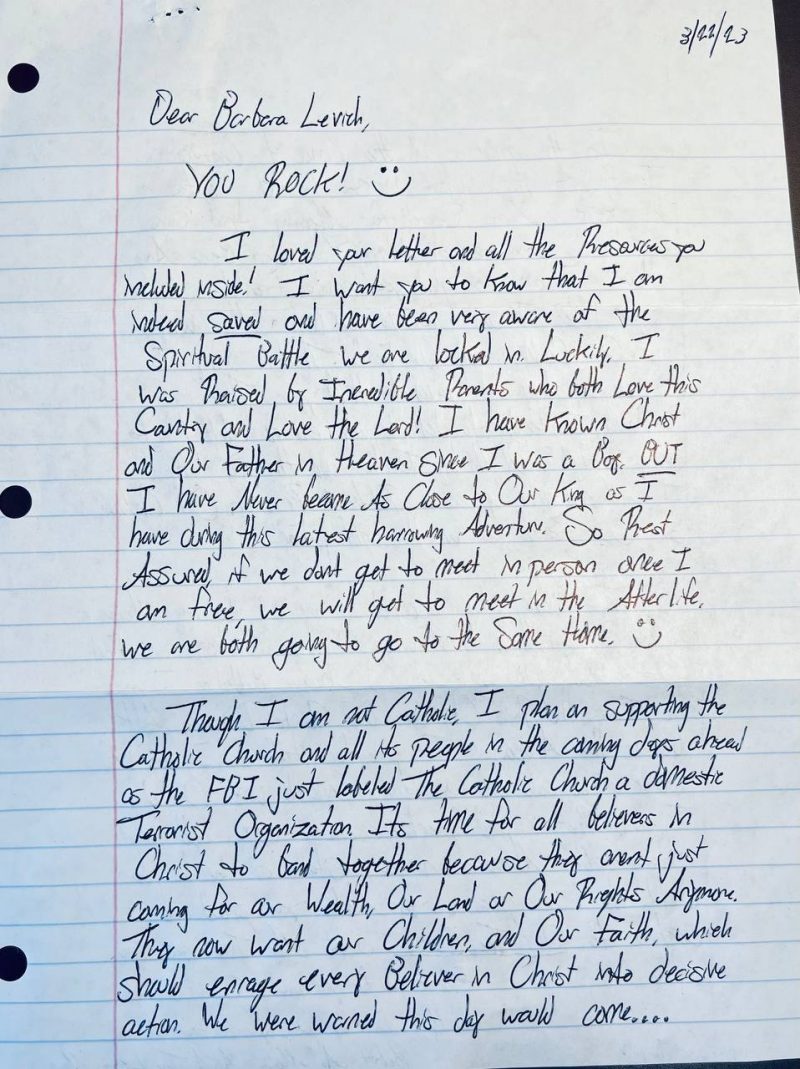 3/22/23
Dear Barbara Levich,
YOU ROCK!
I loved your Letter and all the Resources you
included inside! I want you to know that I am
indeed saved and have been very aware of the
Spiritual Battle we are locked in. Luckily, I
was Raised by Incredible Parents who both Love this
Country and Love the Lord! I have Known Christ
and Our Father in Heaven Since I was a Boy. BUT
I have Never become As Close to Our King as I
have during this latest harrowing Adventure. So Rest
Assured, if we dont get to meet in person once I
am free, we will get to meet in the Afterlife.
we are both going to go to the Same Home.
Though I am not Catholic, I plan on supporting the
Catholic Church and all its people in the coming days ahead
as the FBI just labeled The Catholic Church a domestic
Terrorist Organization. Its time for all believers in
Christ to band together because they arent just
coming for our Wealth, Our Land or Our Rights Anymore.
They now want our Children, and Our Faith, which
should enrage every Believer in Christ into decisive
action. We were warned this day would come....